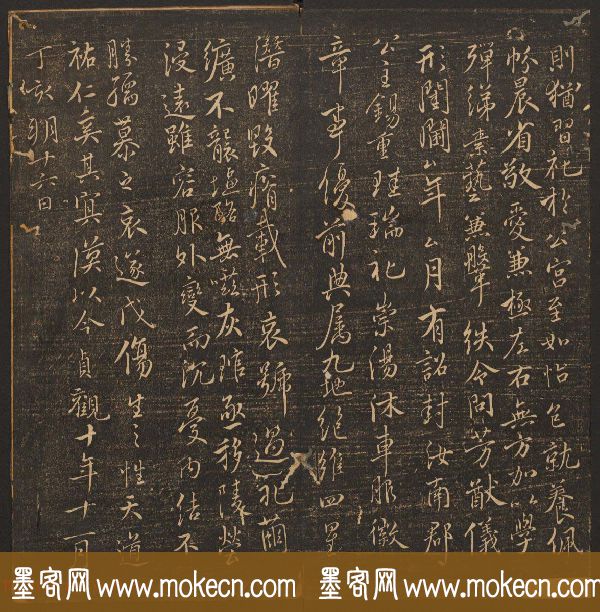 則猶習礼於公宮至如怡色就養佩
帉晨省敬愛兼極左右無方加以學
殫綈素藝兼鞶紩令問芳猷儀
形閨閫厶年厶月有詔封汝南郡
公主錫重珪瑞礼崇湯沐車服徽
章事優前典属九地絕維四星
潛曜毀瘠載形哀號過礼繭
纊不襲鹽酪無嗞灰琯亟移陵塋
浸遠雖容服外變而沉憂內結不
勝孺慕之哀遂戕傷生之性天道
祐仁奚其冥漠以今貞觀十年十一月
丁亥朔十六日
墨客网 www.mokecn.com 墨客网 www.mokecn.com